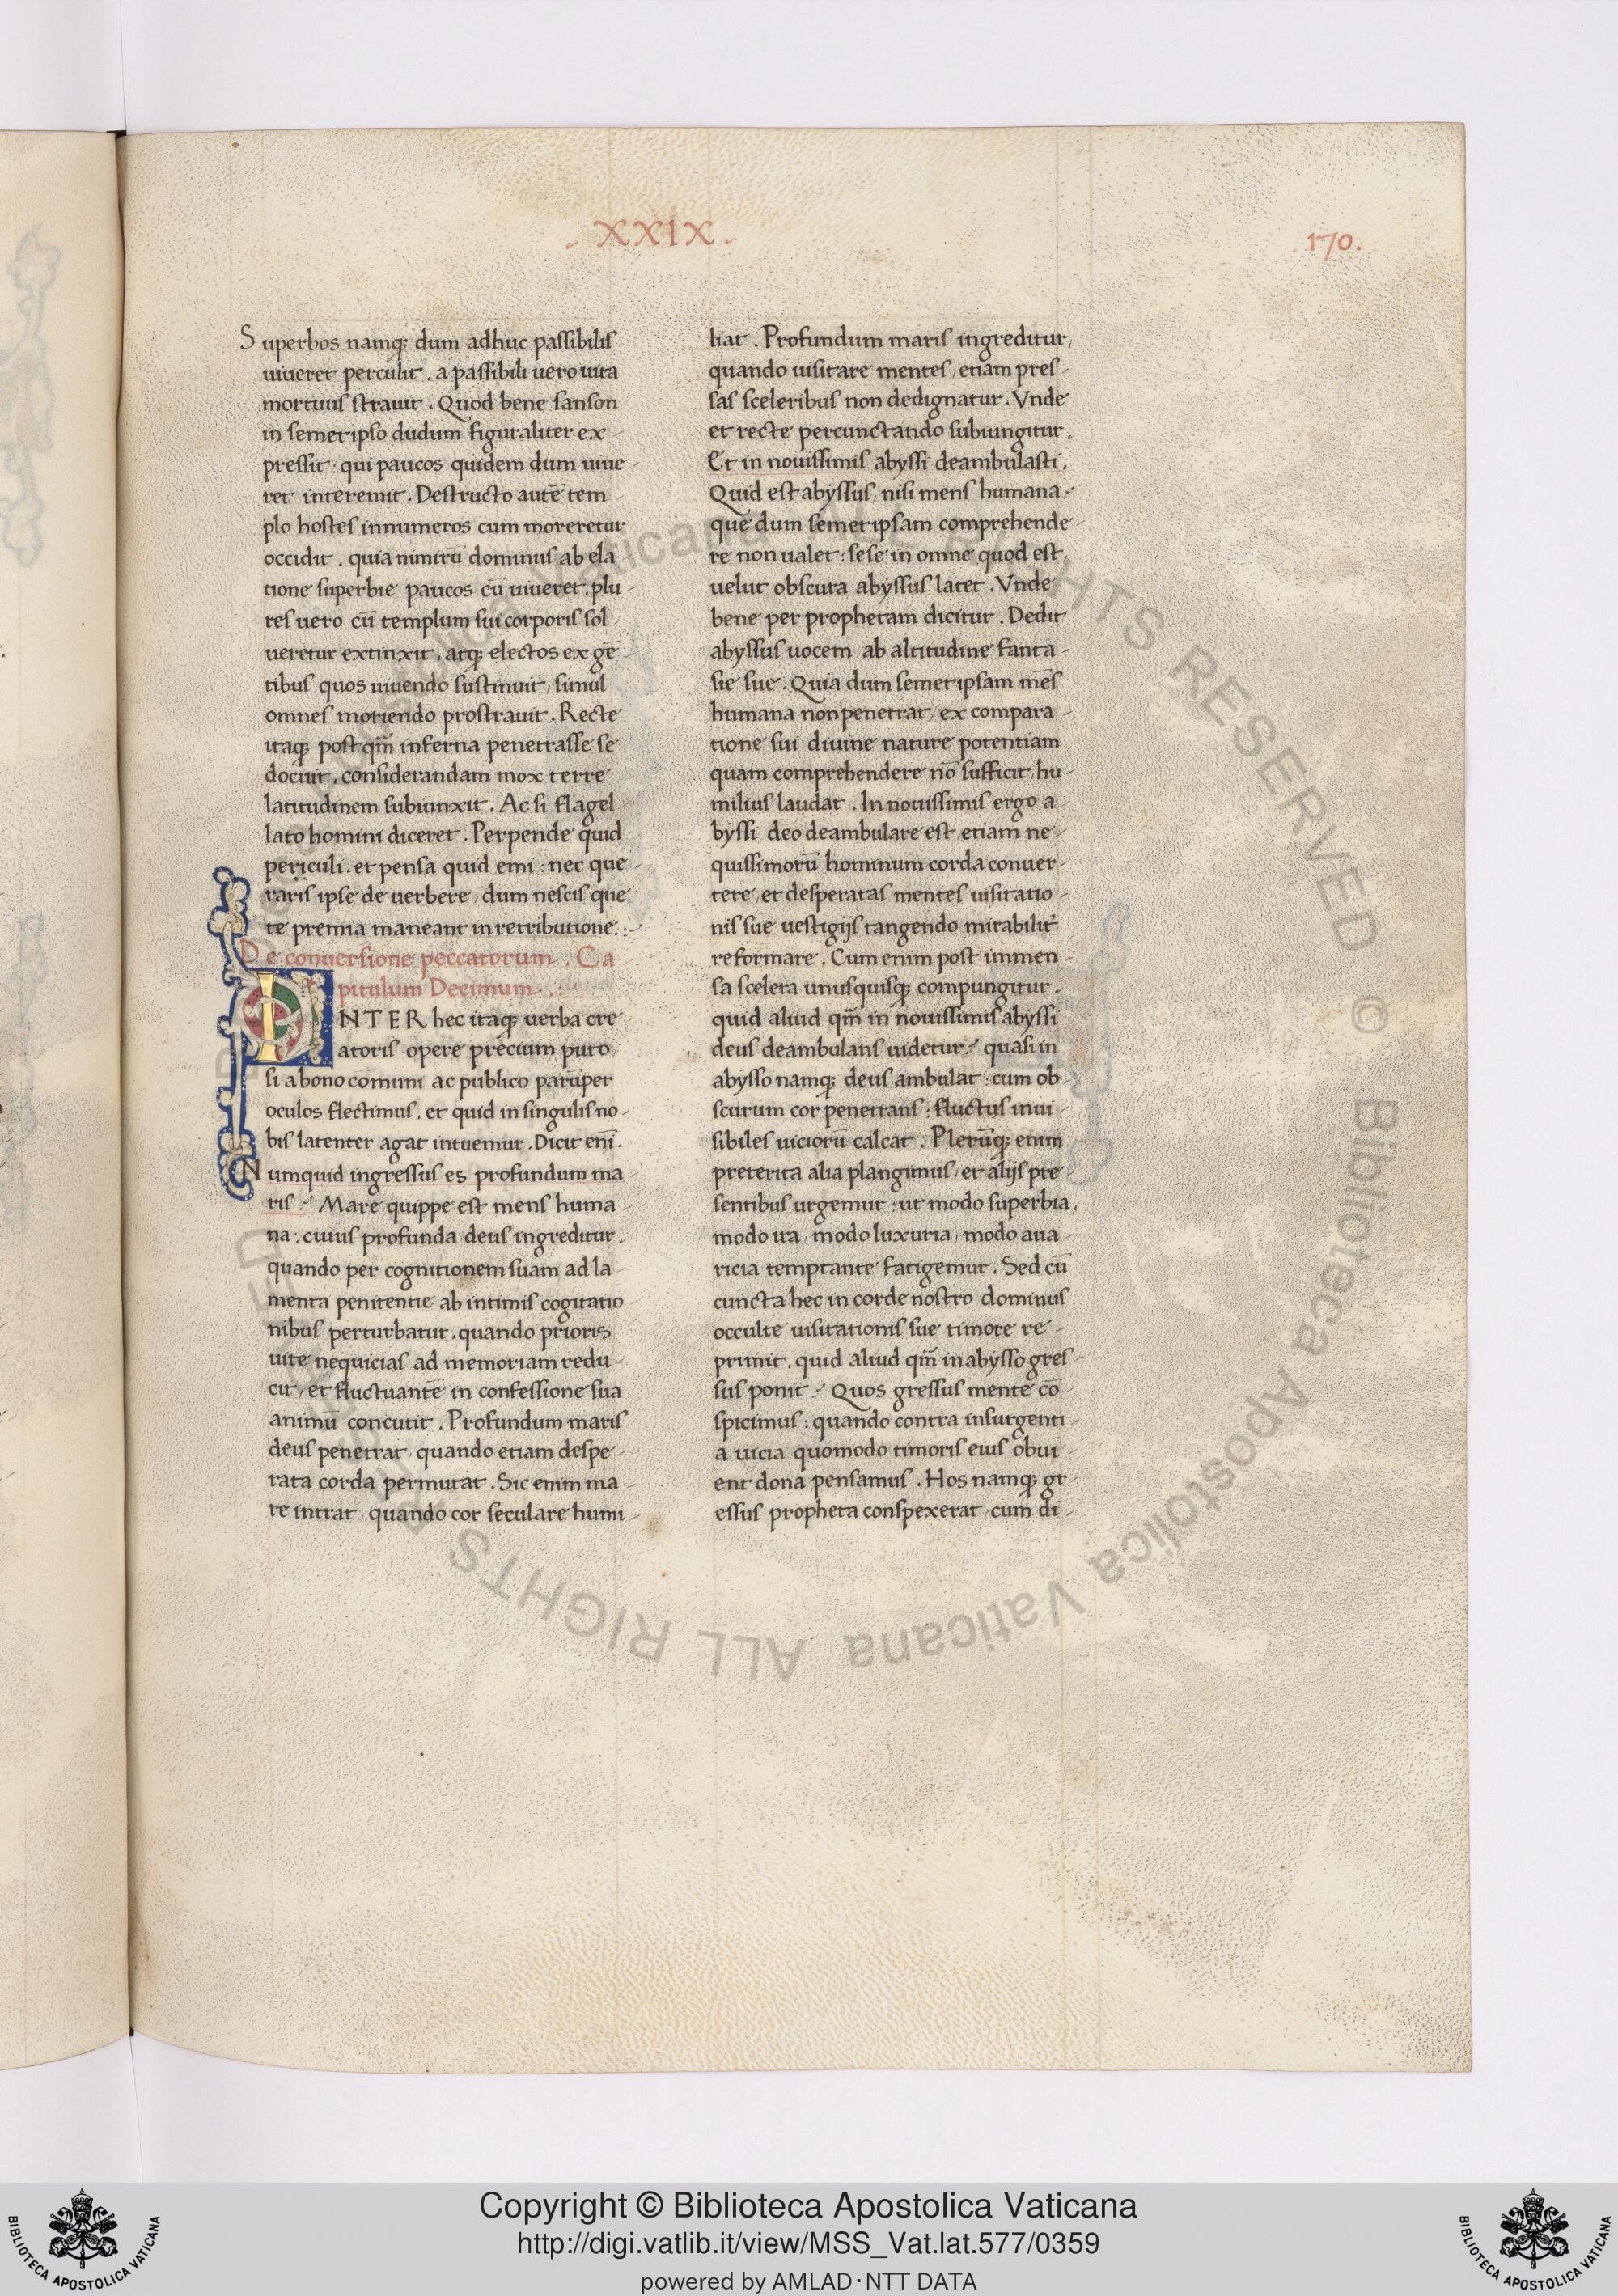 XXIX.
170.
Superbos namq; dum adhuc passibilis
uiueret perculit. a passibili uero uita
mortuus strauit. Quod bene sanson
in semetipso dudum figuraliter ex-
pressit: qui paucos quidem dum uiue-
ret interemit. Destructo autē tem-
plo hostes innumeros cum moreretur
occidit. quia nimirū dominus ab ela-
tione superbie paucos cū uiueret. plu-
res uero cū templum sui corporis sol-
ueretur extinxit. atq; electos ex gē-
tibus quos uiuendo sustinuit, simul
omnes moriendo prostrauit. Recte
itaq; post qm̄ inferna penetrasse se
docuit. considerandam mox terre
latitudinem subiunxit. Ac si flagel-
lato homini diceret. Perpende quid
periculi. et pensa quid emi: nec que-
raris ipse de uerbere, dum nescis que
te premia maneant in retributione.:-
De conuersione peccatorum. Ca
pitulum Decimum.:
INTER hec itaq; uerba cre-
atoris opere precium puto,
si a bono comuni ac publico parūper
oculos flectimus. et quid in singulis no-
bis latenter agat intuemur. Dicit enī.
Numquid ingressus es profundum ma-
ris.' Mare quippe est mens huma-
na. cuius profunda deus ingreditur.
quando per cognitionem suam ad la-
menta penitentie ab intimis cogitatio
nibus perturbatur. quando prioris
uite nequicias ad memoriam redu-
cit, et fluctuantē in confessione sua
animū concutit. Profundum maris
deus penetrat, quando etiam despe-
rata corda permutat. Sic enim ma-
re intrat, quando cor seculare humi-
liat. Profundum maris ingreditur,
quando uisitare mentes, etiam pres-
sas sceleribus non dedignatur. Vnde
et recte percunctando subiungitur.
Et in nouissimis abyssi deambulasti.
Quid est abyssus, nisi mens humana.'
que dum semetipsam comprehende-
re non ualet: sese in omne quod est,
uelut obscura abyssus latet. Vnde
bene per prophetam dicitur. Dedit
abyssus uocem ab altitudine fanta-
sie sue. Quia dum semetipsam mēs
humana non penetrat, ex compara-
tione sui diuine nature potentiam
quam comprehendere nō sufficit, hu-
milius laudat. In nouissimis ergo a-
byssi deo deambulare est, etiam ne-
quissimorū hominum corda conuer-
tere, et desperatas mentes uisitatio-
nis sue uestigijs tangendo mirabilit̄
reformare. Cum enim post immen-
sa scelera unusquisq; compungitur.
quid aliud qm̄ in nouissimis abyssi
deus deambulans uidetur.' quasi in
abysso namq; deus ambulat: cum ob-
scurum cor penetrans: fluctus inui-
sibiles uiciorū calcat. Plerūq; enim
preterita alia plangimus, et alijs pre-
sentibus urgemur: ut modo superbia,
modo ira, modo luxuria, modo aua-
ricia temptante fatigemur. Sed cū
cuncta hec in corde nostro dominus
occulte uisitationis sue timore re-
primit. quid aliud qm̄ in abysso gres-
sus ponit.' Quos gressus mente cō-
spicimus: quando contra insurgenti-
a uicia quomodo timoris eius obui-
ent dona pensamus. Hos namq; gr-
essus propheta conspexerat, cum di-
Copyright © Biblioteca Apostolica Vaticana
http://digi.vatlib.it/view/MSS_Vat.lat.577/0359
powered by AMLAD·NTT DATA
BIBLIOTECA APOSTOLICA VATICANA
BIBLIOTECA APOSTOLICA VATICANA